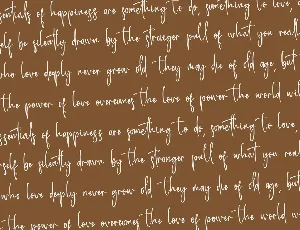 ssentials of happiness are something to do, something to love,
self be silently drawn by the stronger pull of what you reall
who love deeply never grow old they may die of old age, but
the power of love overcomes the love of power the world wil
ssentials of happiness are something to do, something to love,
self be silently drawn by the stronger pull of what you real
who love deeply never grow old they may die of old age, but
the power of love overcomes the love of power the world w